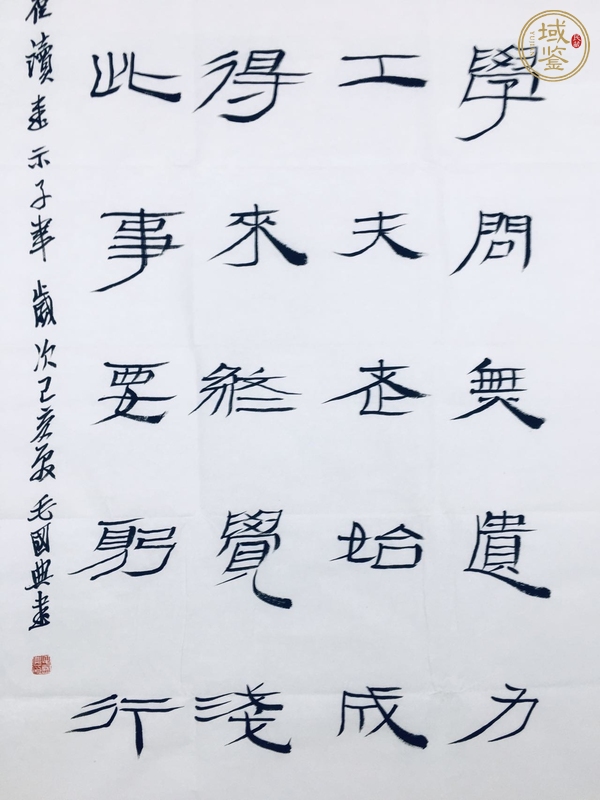 學問無遺力
工夫老始成
得來終覺淺
此事要躬行
讀書示子聿 歲次己亥夏 毛國典書
域鉴